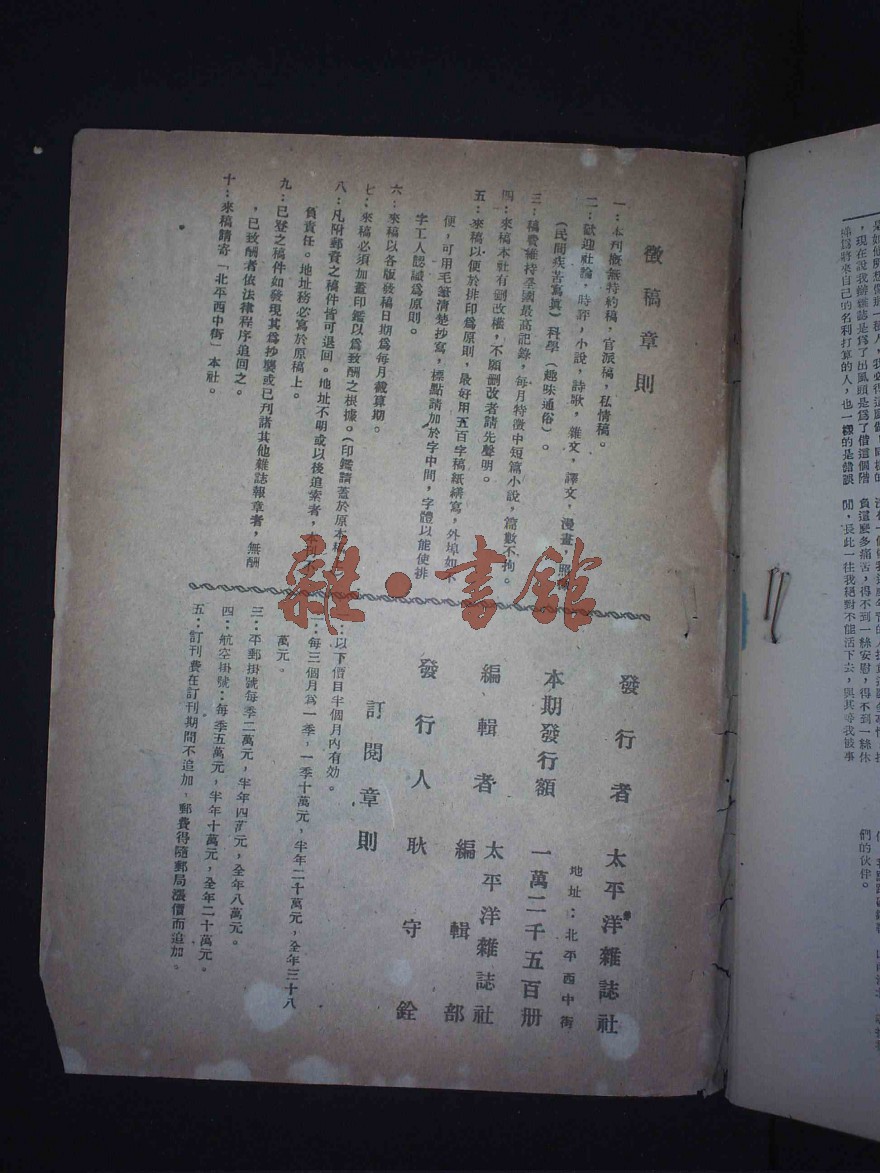 徵稿章則
一：本刊概無特約稿，官派稿，私情稿。
二：歡迎社論，時評，小說，詩歌，雜文，譯文，漫畫，照
（民間疾苦寫眞）科學（趣味通俗）。
三：稿費維持全國最高記錄，每月特徵中短篇小說，篇數不拘。
四：來稿本社有刪改權，不願刪改者請先聲明。
五：來稿以便於排印爲原則，最好用五百字稿紙繕寫，外埠如不
便，可用毛筆清楚抄寫，標點請加於字中間，字體以能使排
字工人認識爲原則。
六：來稿以各版發稿日期爲每月截算期。
七：來稿必須加蓋印鑑以爲致酬之根據。（印鑑請蓋於原本稿
八：凡附郵資之稿件皆可退回。地址不明或以後追索者，本刊不
負責任。地址務必寫於原稿上。
九：已登之稿件如發現其爲抄襲或已刋諸其他雜誌報章者，無酬
，已致酬者依法律程序追回之。
十：來稿請寄「北平西中街」本社。
發行者 太平洋雜誌社
地址：北平西中街
本期發行額 一萬二千五百册
編輯者 太平洋雜誌社
編輯部
發行人 耿守銓
訂閱章則
：以下價目半個月內有效。
二：每三個月爲一季，一季十萬元，半年二十萬元，全年三十八
萬元。
三：平郵掛號每季二萬元，半年四萬元，全年八萬元。
四：航空掛號：每季五萬元，半年十萬元，全年二十萬元。
五：訂刊費在訂刊期間不追加，郵費得隨郵局漲價而追加。
雜·書館
，現在說我辦雜誌是爲了出風頭是爲了借這個階
梯爲將來自己的名利打算的人，也一樣的是錯誤
負這麽多痛苦，得不到一絲安慰，得不到一絲休
閒，長此一往我絕對不能活下去，與其等我被事
們的伙伴。